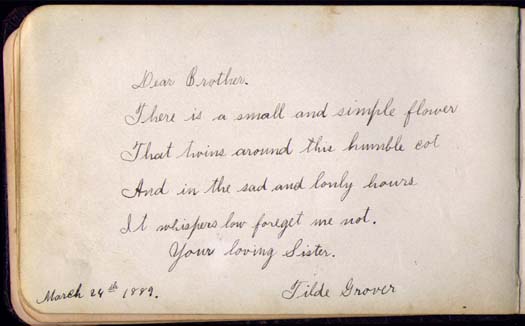 Dear Brother.
There is a small and simple flower
That twins around this humble cot
And in the sad and lonly hours
It whispers low foreget me not.
Your loving Sister.
March 24th 1889.
Tilde Grover